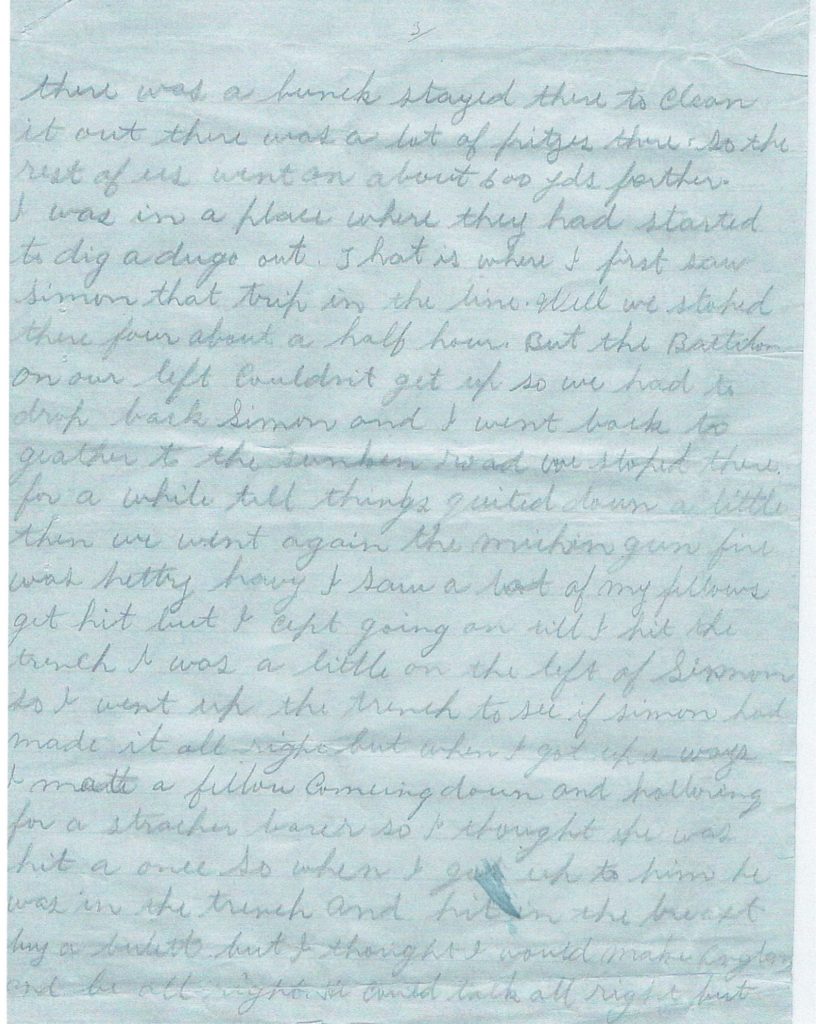 3/
there was a bunch stayed there to Clean
it out there was a lot of fritzes there. So the
rest of us went on about 600 yds forther.
I was in a place where they had started
to dig a dugo out. That is where I first saw
Simon that trip in the line. Well we stoped
there four about a half hour. But the Battilon
on our left Couldn't get up so we had to
drop back Simon and I went back to
geather to the sunken road we stoped there.
for a while till things quited down a little
then we went again the muchin gun fire
was pettry havy I saw a lot of my fellows
get hit but I cept going on till I hit the
trench I was a little on the left of Simmon
so I went up the trench to see if simon had
made it all right but when I got up a ways
I mat a fellow Comeing down and holloring
for a stracher barer so I thought he was
hit a once So when I got up to him he
was in the trench and hit in the breast
by a bulett but I thought I would make England
and be all right. He could talk all right but